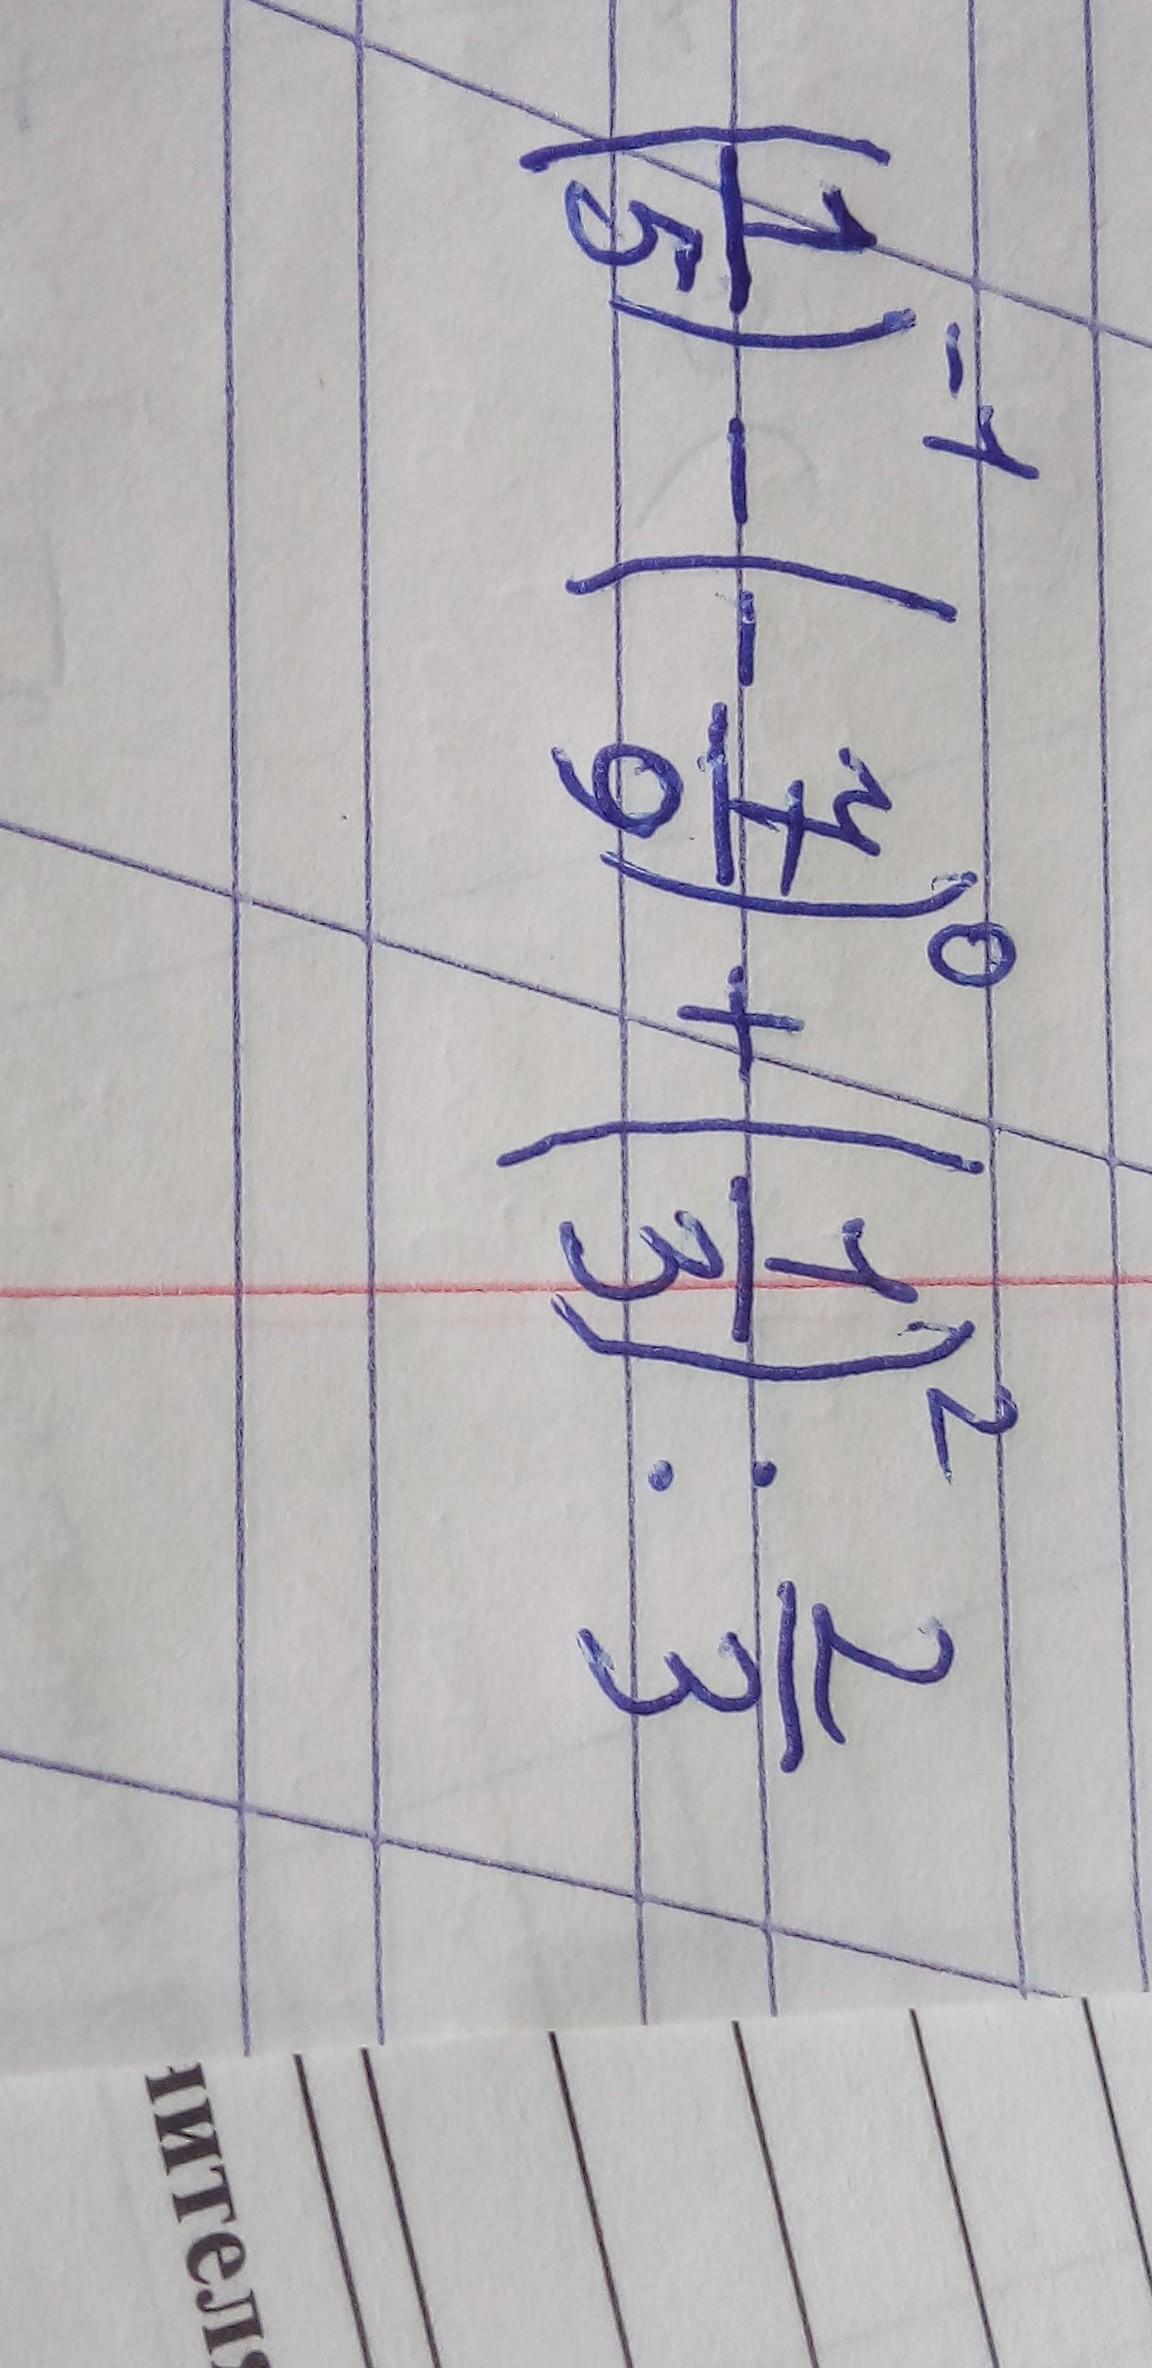 (1/5)^-1 - (-7/9)^0 + (1/3)^2 : 2/3
нителя